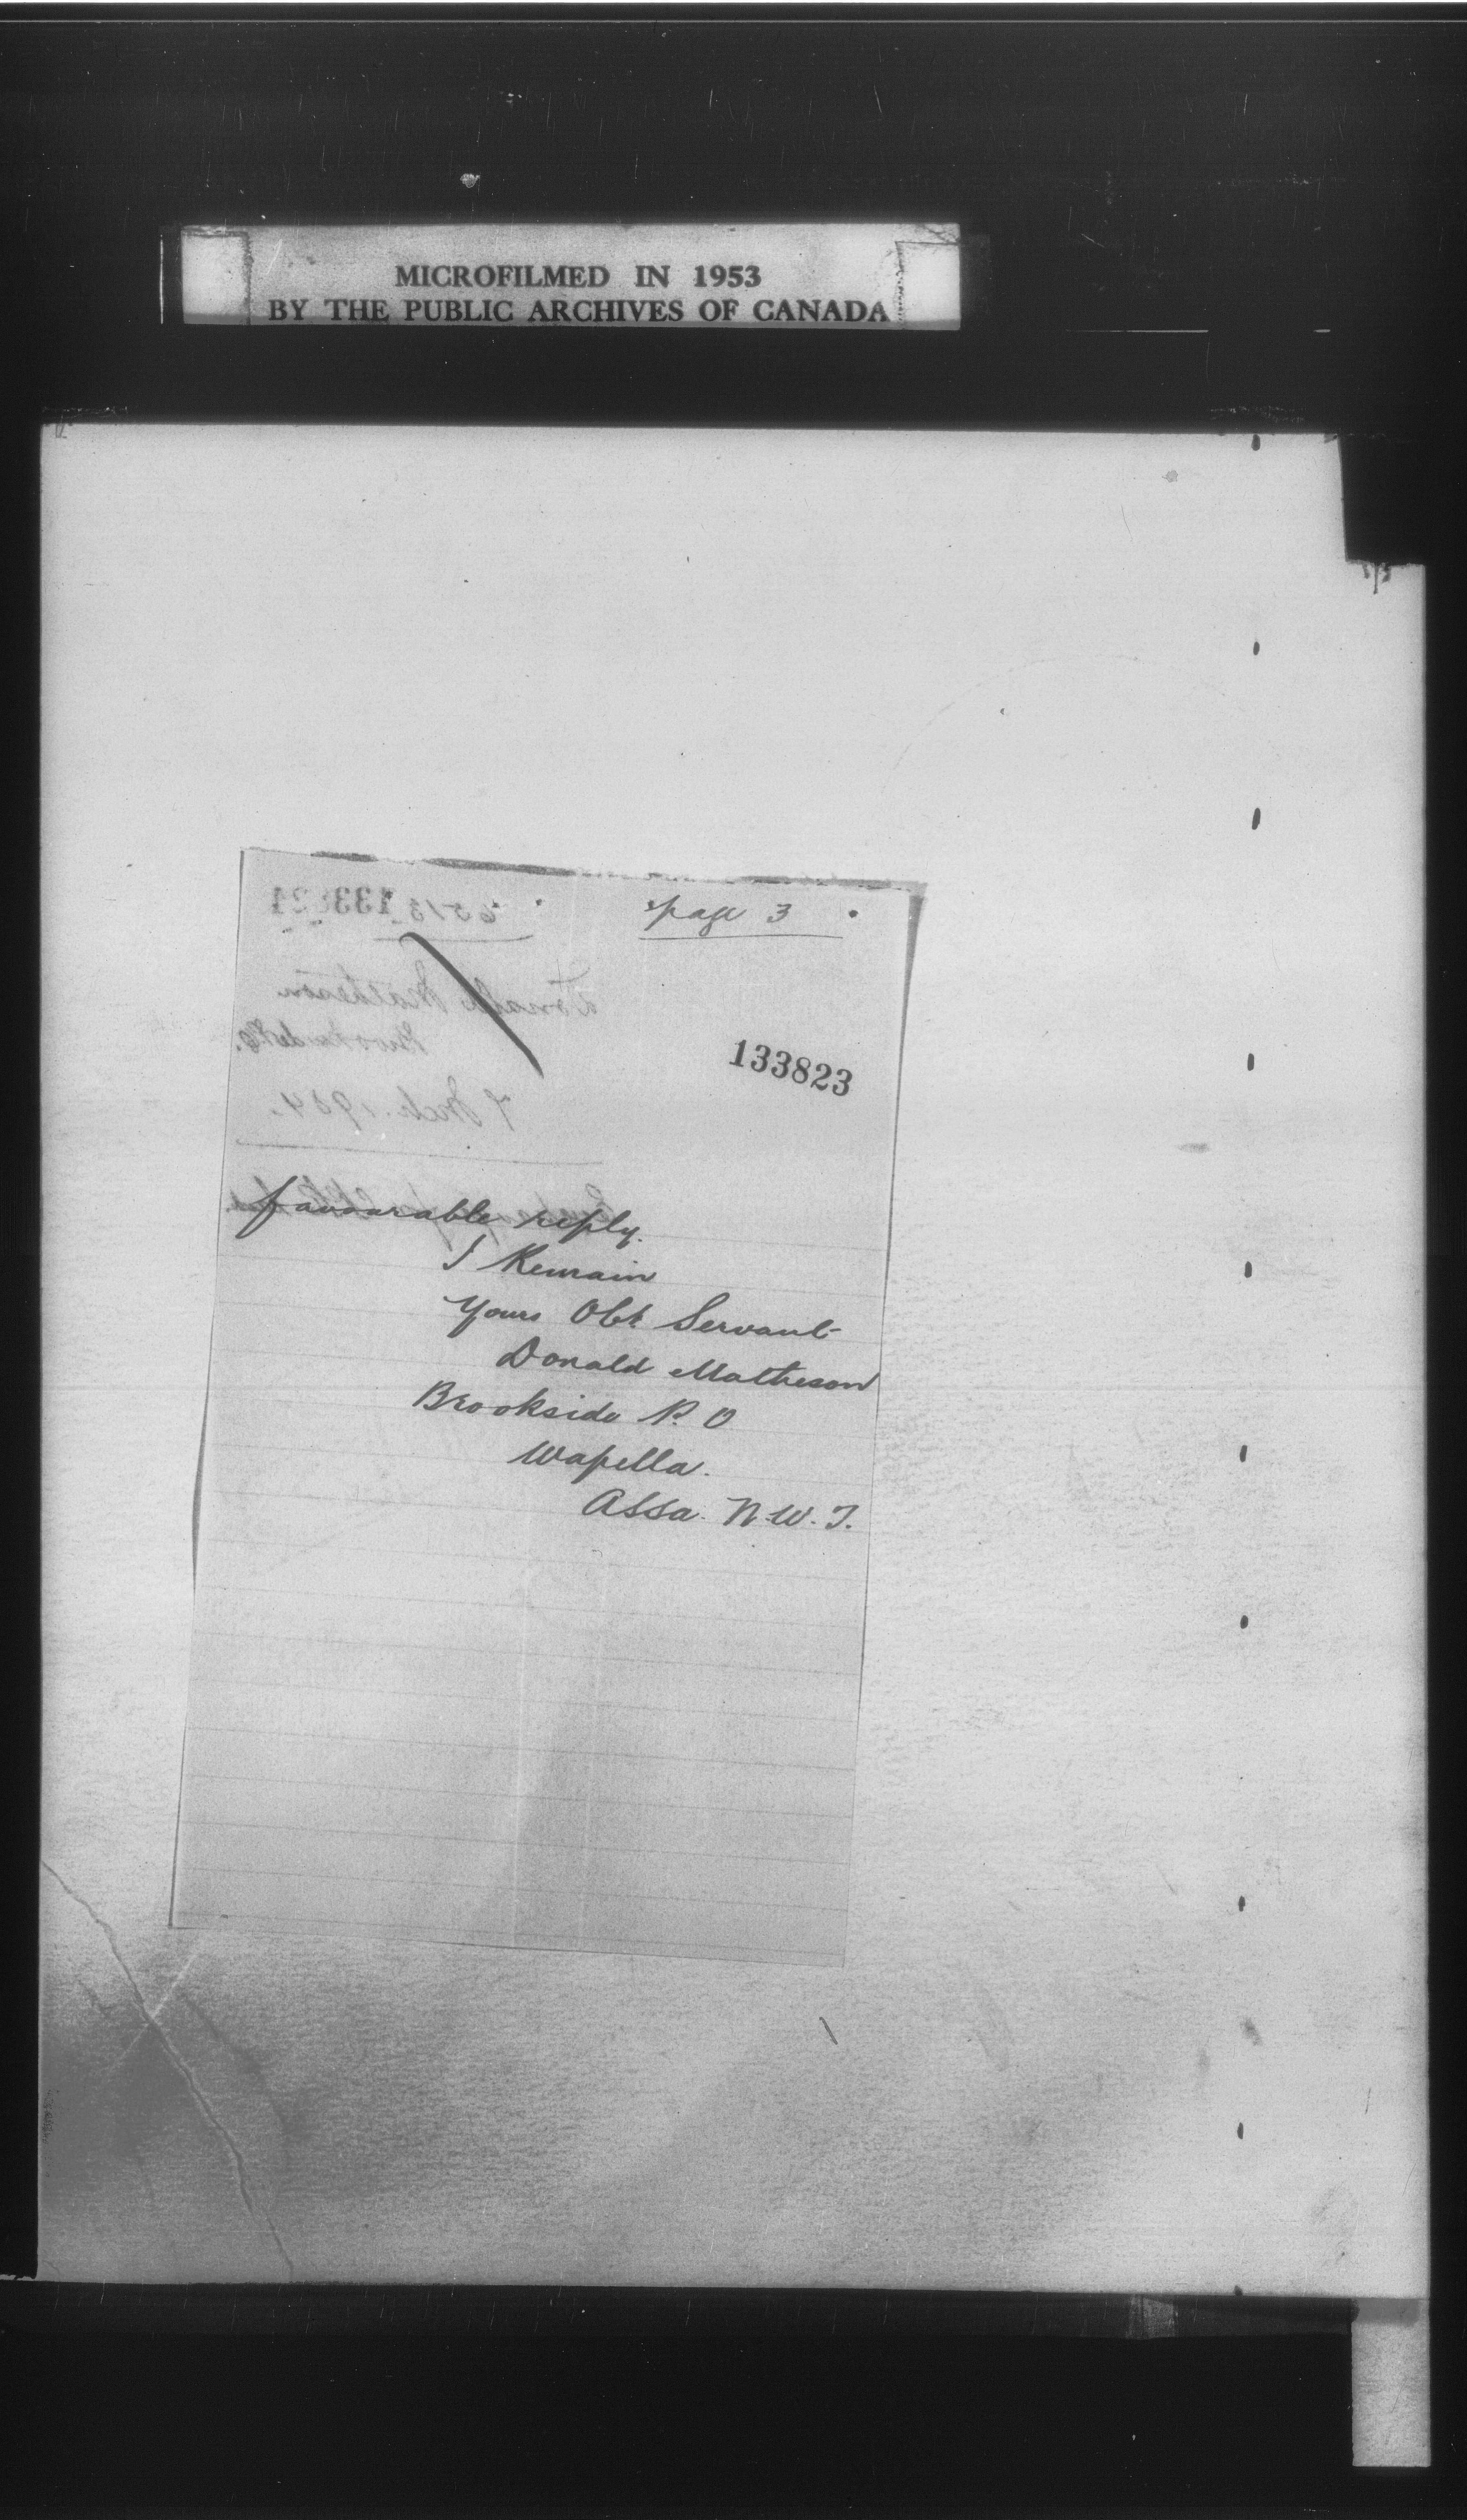 MICROFILMED IN 1953
BY THE PUBLIC ARCHIVES OF CANADA
page 3
133823
favourable reply.
I Remain
Yours Obt. Servant
Donald Matheson
Brookside P. O
Wapella.
Assa. N.W.T.